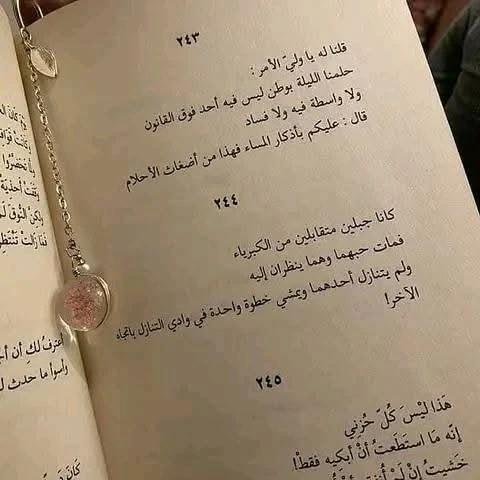 ٢٤٣
قلنا له يا وليّ الأمر :
حلمنا الليلة بوطن ليس فيه أحد فوق القانون
ولا واسطة فيه ولا فساد
قال : عليكم بأذكار المساء فهذا من أضغاث الأحلام
٢٤٤
كانا جبلين متقابلين من الكبرياء
فمات حبهما وهما ينظران إليه
ولم يتنازل أحدهما ويمشي خطوة واحدة في وادي التنازل باتجاه
الآخر!
٢٤٥
هَذا ليْسَ كلّ حُزني
إنّه ما استَطَعتُ أنْ أبكيه فقطْ!
خَشيتُ إنْ لَمْ
اعترفُ لكِ أن
وأسوأ ما حدث